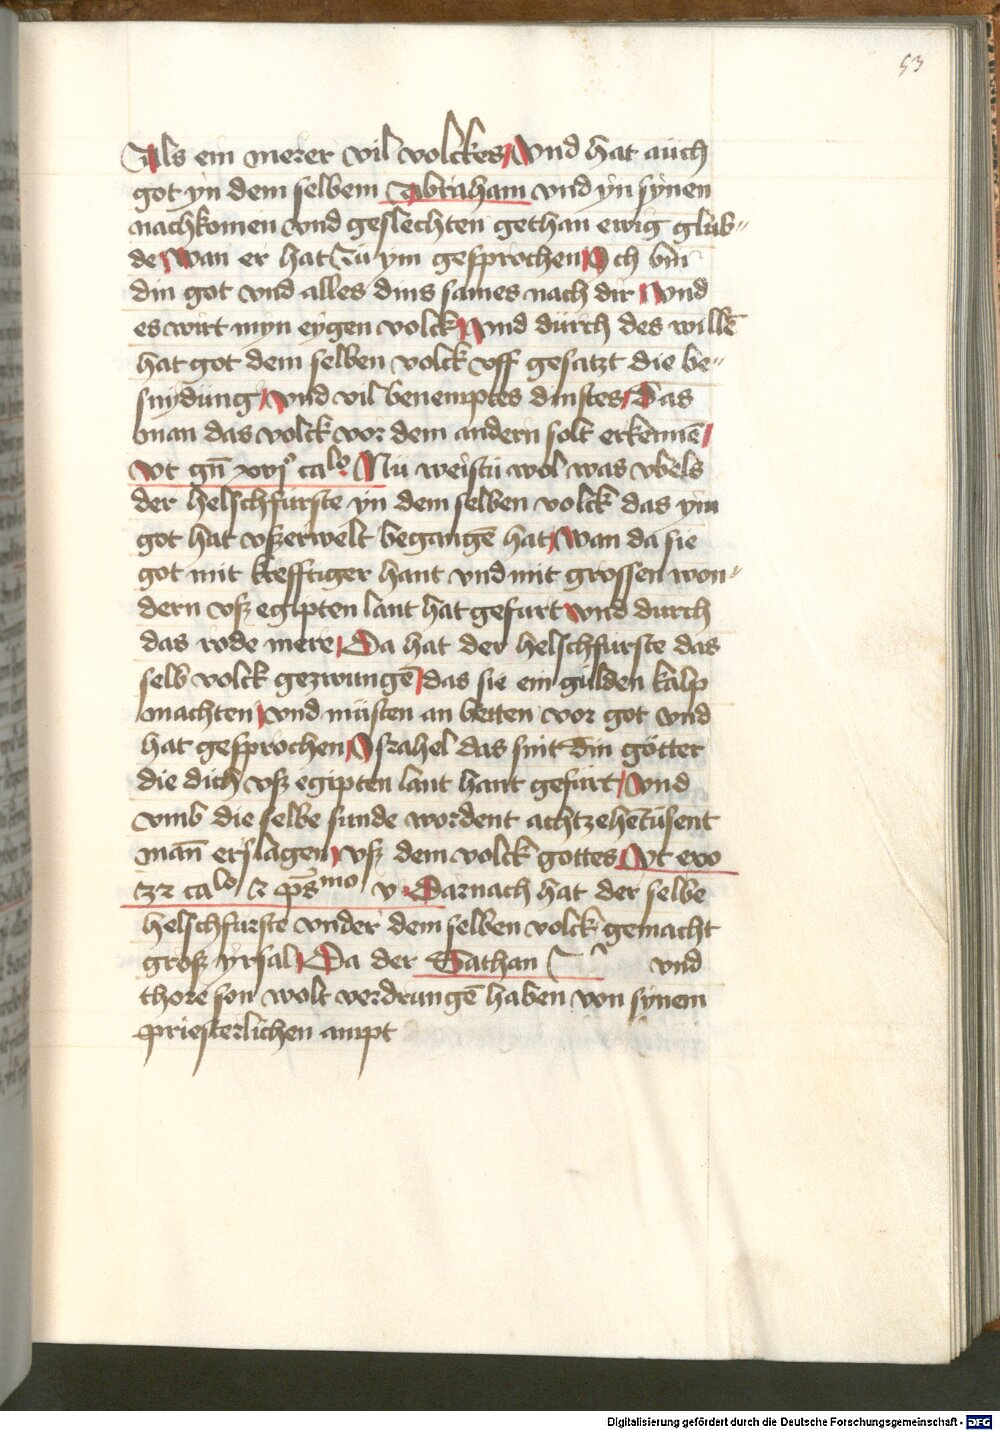 53
Als ein merer vil volckes Vnd hat auch
got yn dem selbem Abraham vnd yn synen
nachkomen vnd geslechten gethan ewig glub〃
de Wan er hat zu ym gesprochen Ich bin
din got vnd alles dins sames nach dir Vnd
es wirt myn eygen volck Vnd durch des willē
hat got dem selben volck vff gesatzt die be〃
snydung Vnd vil benemptes dinstes Das
man das volck vor dem andern solt erkennē
Vt gn̄ xvijº calº Nu weistu wol was vbels
der helschfurste yn dem selben volck das ym
got hat vszerwelt begangē hat Wan da sie
got mit krefftiger hant vnd mit grossen won〃
dern vsz egipten lant hat gefurt Vnd durch
das rode mere Da hat der helschfurste das
selb volck gezwungē das sie ein gulden kalp
machten Vnd musten an betten vor got vnd
hat gesprochen Israhel das sint din götter
die dich vsz egipten lant hant gefurt Vnd
vmb die selbe sunde wordent achtzehētusent
man̄ erslagen vsz dem volck gottes Vt exo
calº v Darnach hat der selbe
helschfurste vnder dem selben volck gemacht
grosz yrsal Da der Dathan vnd
thore son wolt verdrungē haben von synem
priesterlichen ampt
Digitalisierung gefördert durch die Deutsche Forschungsgemeinschaft - DFG